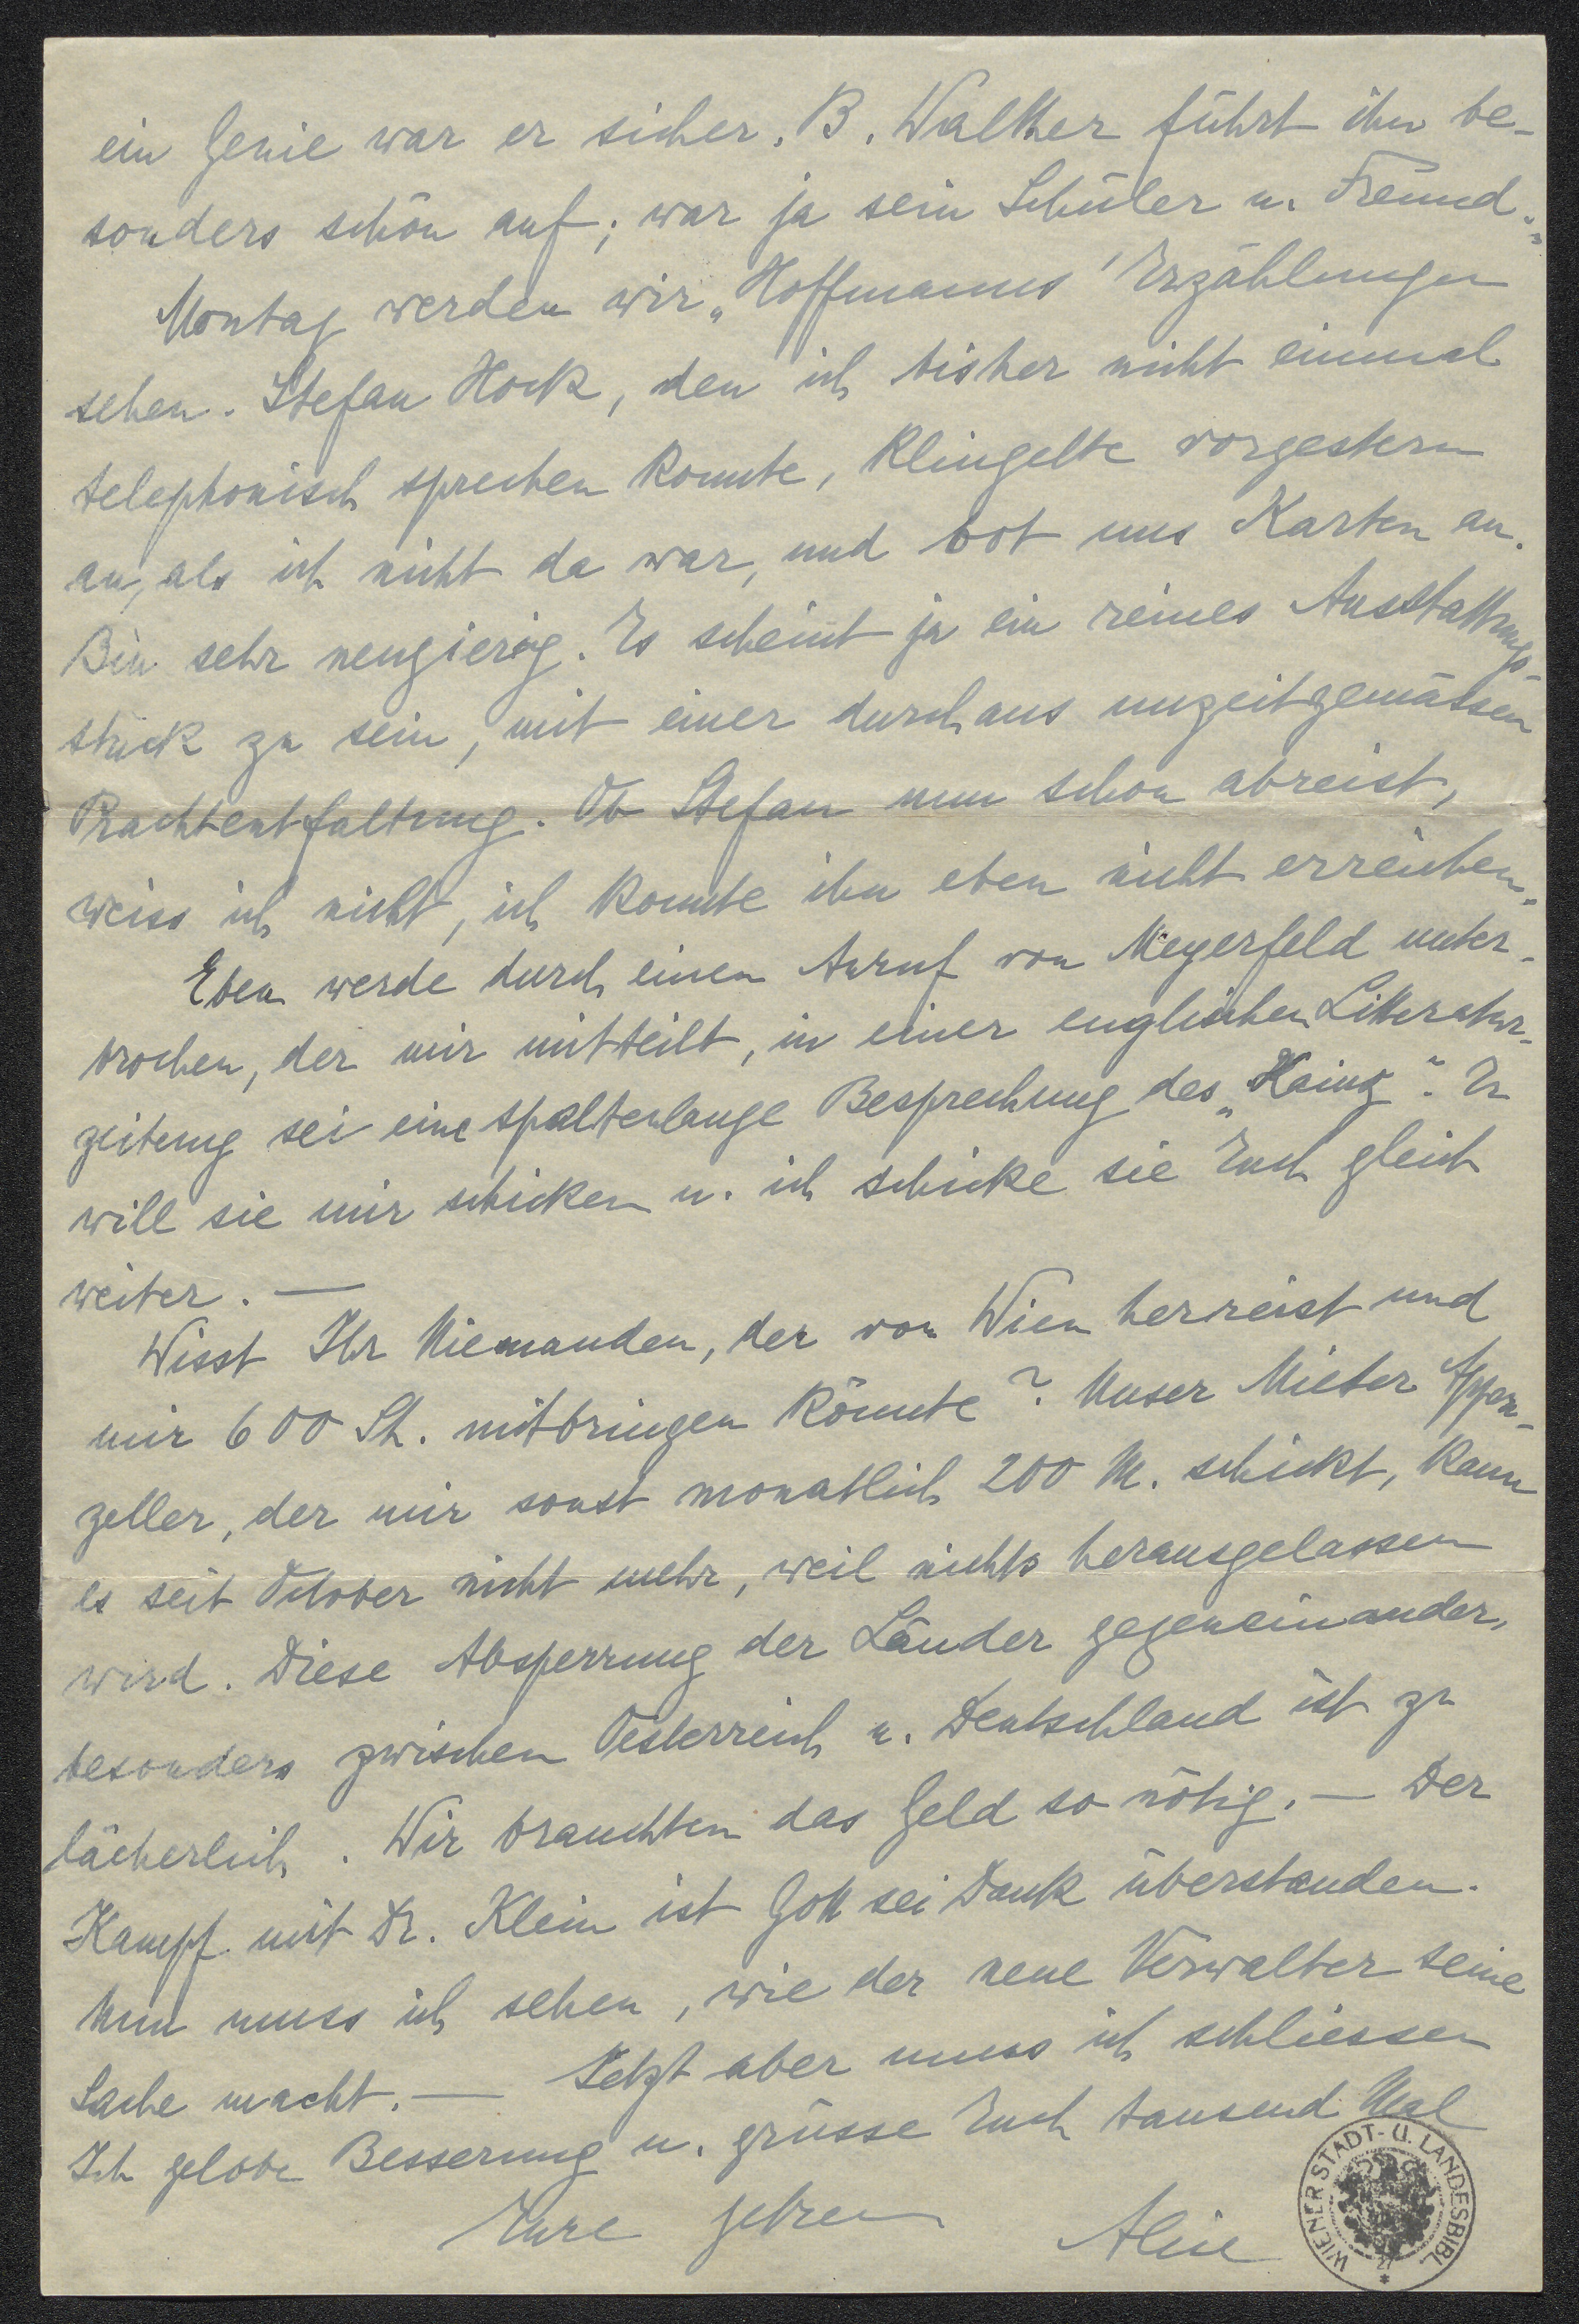 ein Genie war er sicher. B. Walther führt ihn be-
sonders schön auf; war ja sein Schüler u. Freund.-
Montag werden wir „Hoffmanns' Erzählungen
sehen. Stefan Hock, den ich bisher nicht einmal
telephonisch sprechen konnte, klingelte vorgestern
an, als ich nicht da war, und bot uns Karten an.
Bin sehr neugierig. Es scheint ja ein reines Ausstattungs-
stück zu sein, mit einer durchaus unzeitgemässen
Prachtentfaltung. Ob Stefan nun schon abreist,
weiss ich nicht, ich konnte ihn eben nicht erreichen.-
Eben werde durch einen Anruf von Meyerfeld unter-
brochen, der mir mitteilt, in einer englischen Litteratur-
zeitung sei eine spaltenlange Besprechung des „Kainz". Er
will sie mir schicken u. ich schicke sie Euch gleich
weiter. —
Wisst Ihr Niemanden, der von Wien herreist und
mir 600 Sh. mitbringen könnte? Unser Mieter Appen-
zeller, der mir sonst monatlich 200 M. schickt, kann
es seit October nicht mehr, weil nichts herausgelassen
wird. Diese Absperrung der Länder gegeneinander,
besonders zwischen Oesterreich u. Deutschland ist zu
lächerlich. Wir brauchten das Geld so nötig. — Der
Kampf mit Dr. Klein ist Gott sei Dank überstanden.
Nun muss ich sehen, wie der neue Verwalter seine
Sache macht. — Jetzt aber muss ich schliessen
Ich gelobe Besserung u. grüsse Euch tausend Mal
Eure getreue
Alice
WIENER STADT- U. LANDESBIBL.